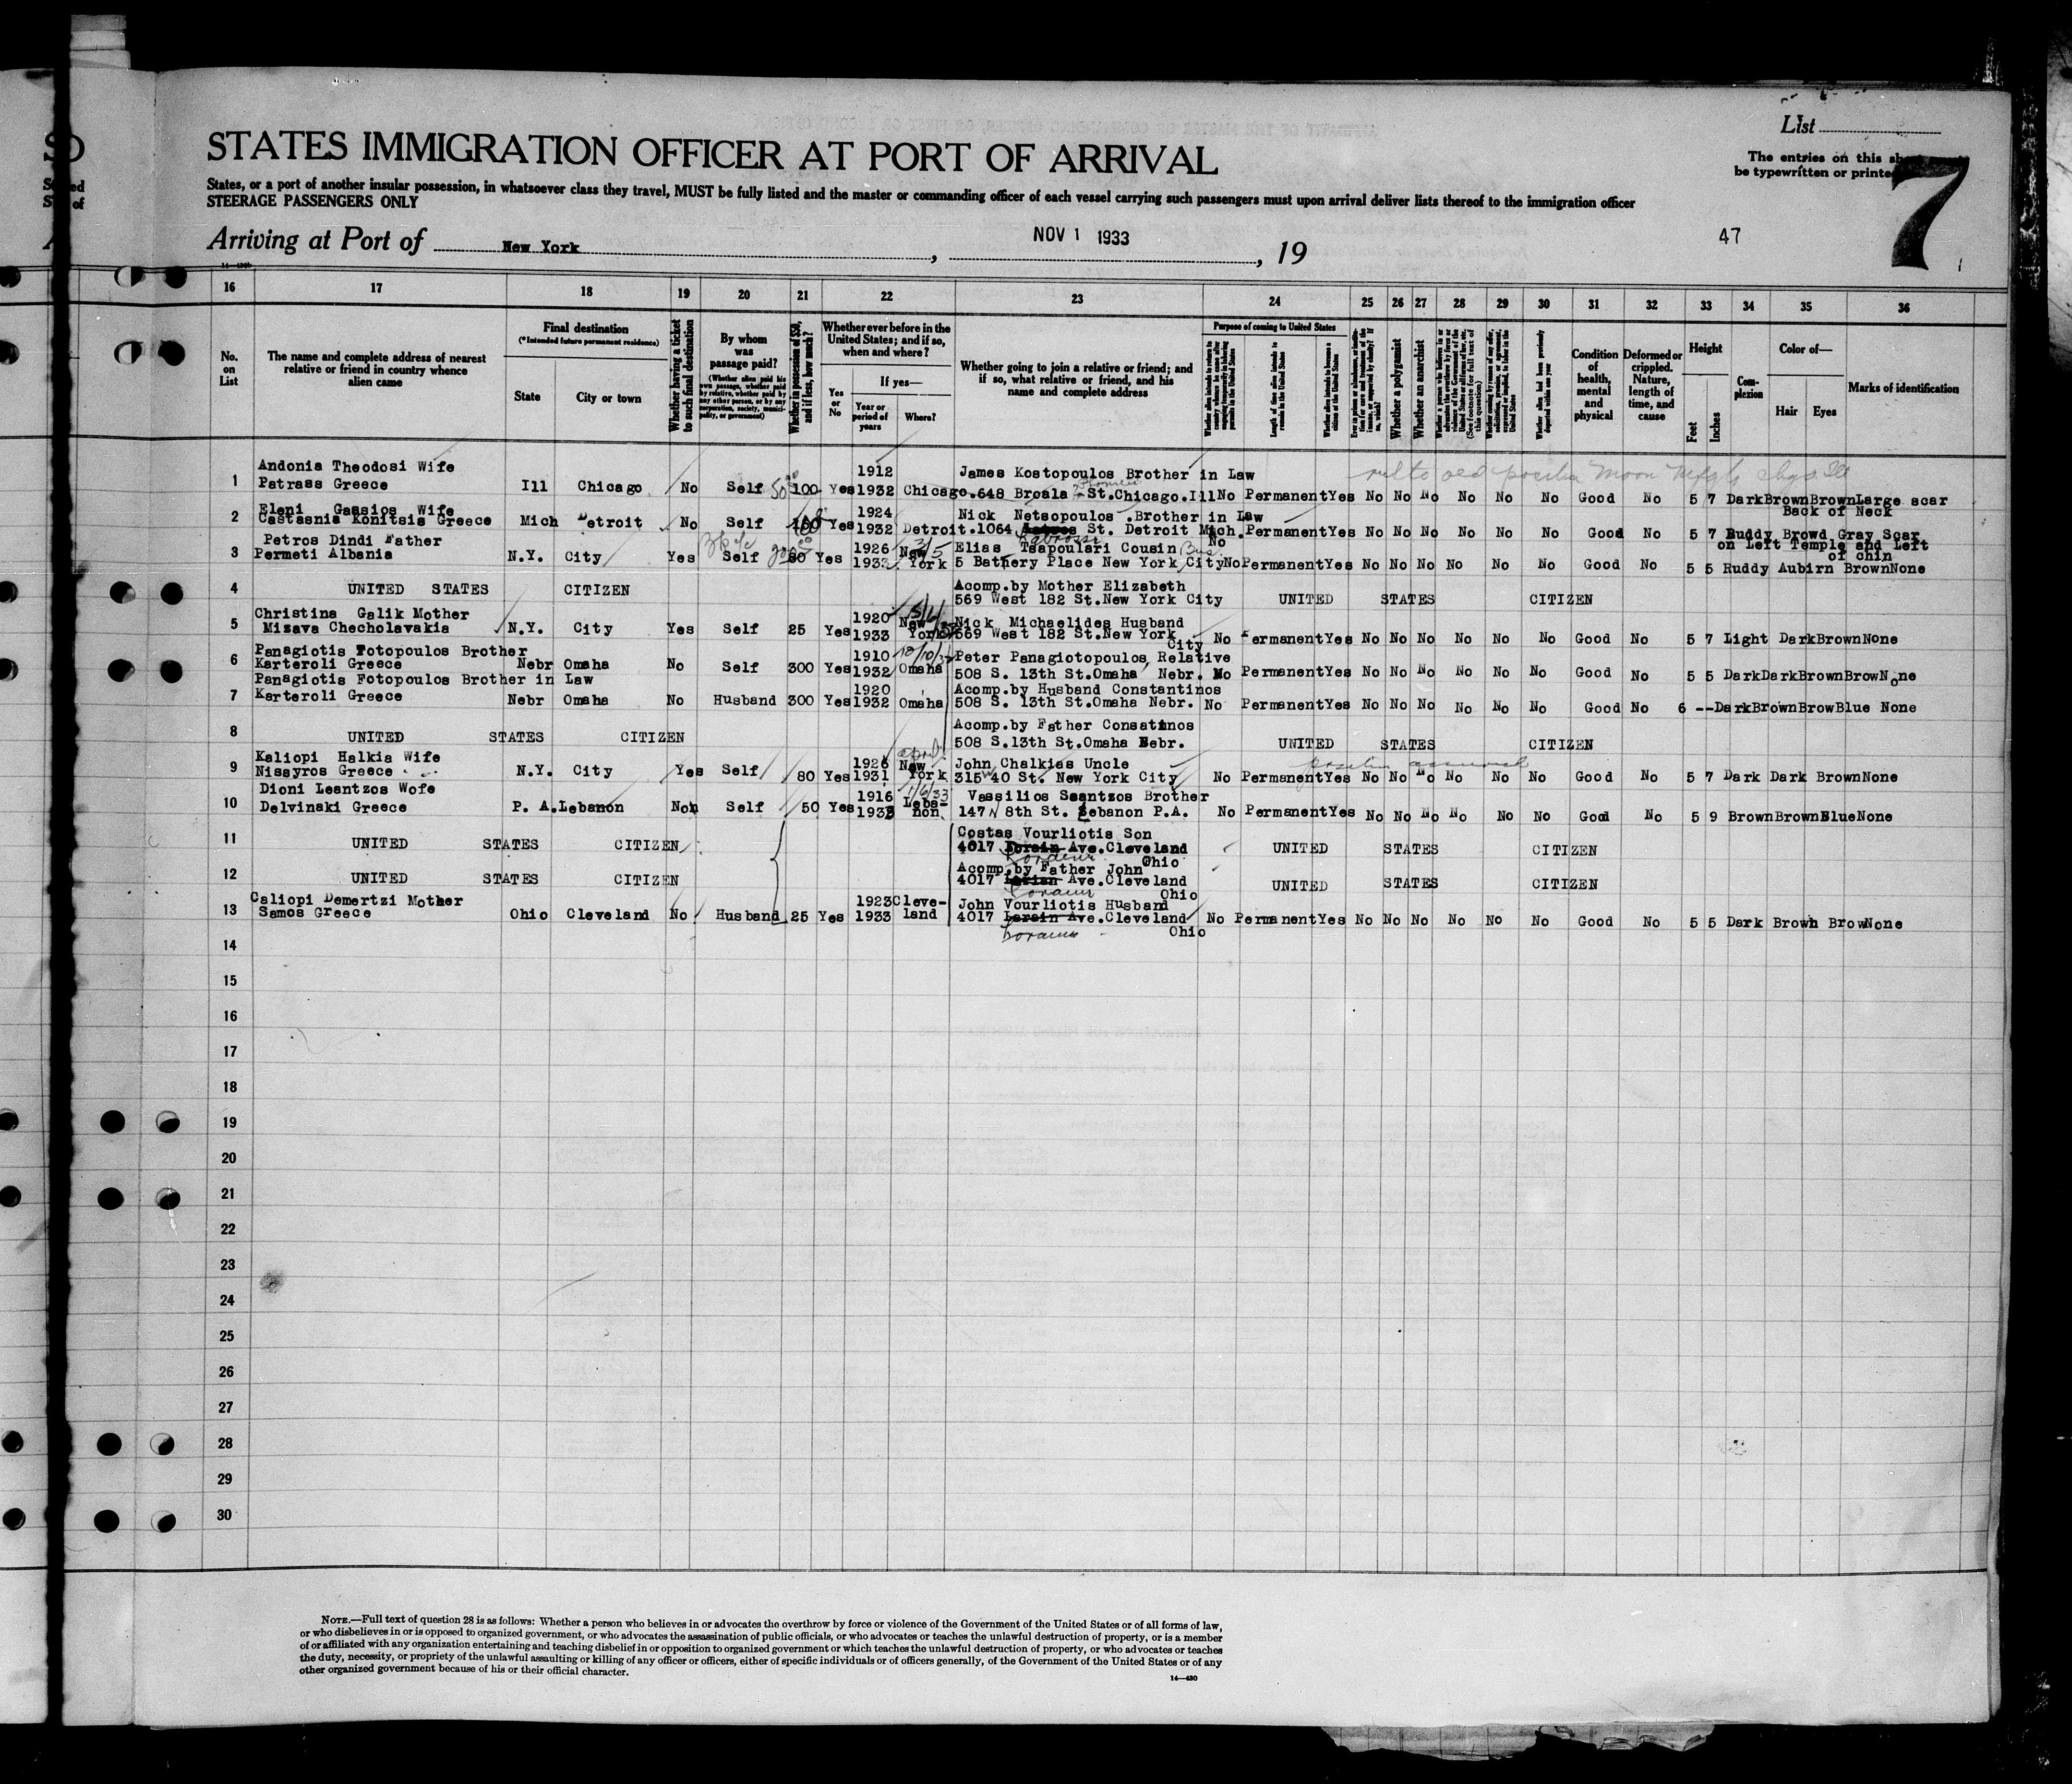 List
The entries on this
be typewritten or printe
7
STATES IMMIGRATION OFFICER AT PORT OF ARRIVAL
States, or a port of another insular possession, in whatsoever class they travel, MUST be fully listed and the master or commanding officer of each vessel carrying such passengers must upon arrival deliver lists thereof to the immigration officer
STEERAGE PASSENGERS ONLY
Arriving at Port of New York, NOV 1 1933, 19
47
16 17 18 19 20 21 22 23 24 25 26 27 28 29 30 31 32 33 34 35 36
No. on List
The name and complete address of nearest relative or friend in country whence alien came
Final destination
(*Intended future permanent residence)
State
City or town
Whether having a ticket to such final destination
By whom was passage paid?
(Whether alien paid his own passage, whether paid by relative, whether paid by any other person, or by any corporation, society, municipality, or government)
Whether in possession of $50, and if less, how much?
Whether ever before in the United States; and if so, when and where?
Yes or No
If yes—
Year or period of years
Where?
Whether going to join a relative or friend; and if so, what relative or friend, and his name and complete address
Purpose of coming to United States
Length of time alien intends to remain in the United States
Whether alien intends to become a citizen of the United States
Whether a polygamist
Whether an anarchist
Whether alien had been previously deported within one year
Condition of health, mental and physical
Deformed or crippled. Nature, length of time, and cause
Height
Feet
Inches
Complexion
Color of—
Hair
Eyes
Marks of identification
1 Andonia Theodosi Wife 1912 James Kostopoulos Brother in Law
Patrass Greece Ill Chicago No Self 100 Yes 1932 Chicago.648 Broala St.Chicago.Ill No Permanent Yes No No No No No No Good No 5 7 Dark Brown Brown Large scar
Back of Neck
2 Eleni Gaasios Wife 1924 Nick Netsopoulos .Brother in Law
Castasnia Konitsis Greece Mich Detroit No Self Yes 1932 Detroit.1064 St. Detroit Mich. No Permanent Yes No No No No No No Good No 5 7 Ruddy Browd Gray Scar
on Left Temple and Left
of chin
3 Petros Dindi Father 1926 New Elias Tsapoulari Cousin
Permeti Albania N.Y. City Yes Self 80 Yes 1933 York 5 Bathery Place New York City No Permanent Yes No No No No No No Good No 5 5 Ruddy Aubirn Brown None
4 Acomp.by Mother Elizabeth
UNITED STATES CITIZEN 569 West 182 St.New York City UNITED STATES CITIZEN
5 Christina Galik Mother 1920 New Nick Michaelides Husband
Mizava Checholavakia N.Y. City Yes Self 25 Yes 1933 York 569 West 182 St.New York City No Permanent Yes No No No No No No Good No 5 7 Light Dark Brown None
6 Panagiotis Fotopoulos Brother 1910 Peter Panagiotopoulos Relative
Karteroli Greece Nebr Omaha No Self 300 Yes 1932 Omaha 508 S. 13th St.Omaha Nebr. No Permanent Yes No No No No No No Good No 5 5 Dark Dark Brown Brow None
7 Panagiotis Fotopoulos Brother in Law 1920 Acomp.by Husband Constantinos
Karteroli Greece Nebr Omaha No Husband 300 Yes 1932 Omaha 508 S. 13th St.Omaha Nebr. No Permanent Yes No No No No No No Good No 6 -- Dark Brown Brow Blue None
8 Acomp.by Father Consatinos
UNITED STATES CITIZEN 508 S.13th St.Omaha Nebr. UNITED STATES CITIZEN
9 Kaliopi Halkia Wife 1926 New John Chalkias Uncle
Nissyros Greece N.Y. City Yes Self 80 Yes 1931 York 315 W 40 St. New York City No Permanent Yes No No No No No No Good No 5 7 Dark Dark Brown None
10 Dioni Leantzos Wofe 1916 1/6/33 Leba- Vassilios Seantzos Brother
Delvinaki Greece P. A. Lebanon Non Self 50 Yes 1933 non. 147 N 8th St. Lebanon P.A. No Permanent Yes No No No No No No Good No 5 9 Brown Brown Blue None
11 Costas Vourliotis Son
UNITED STATES CITIZEN 4017 Lorain Ave.Cleveland Ohio UNITED STATES CITIZEN
12 Acomp.by Father John
UNITED STATES CITIZEN 4017 Lorian Ave.Cleveland Ohio UNITED STATES CITIZEN
13 Caliopi Demertzi Mother 1923 Cleve- John Vourliotis Husband
Samos Greece Ohio Cleveland No Husband 25 Yes 1933 land 4017 Lorain Ave.Cleveland Ohio No Permanent Yes No No No No No No Good No 5 5 Dark Brown Brow None
14
15
16
17
18
19
20
21
22
23
24
25
26
27
28
29
30
NOTE.—Full text of question 28 is as follows: Whether a person who believes in or advocates the overthrow by force or violence of the Government of the United States or of all forms of law,
or who disbelieves in or is opposed to organized government, or who advocates the assassination of public officials, or who advocates or teaches the unlawful destruction of property, or is a member
of or affiliated with any organization entertaining and teaching disbelief in or opposition to organized government or which teaches the unlawful destruction of property, or who advocates or teaches
the duty, necessity, or propriety of the unlawful assaulting or killing of any officer or officers, either of specific individuals or of officers generally, of the Government of the United States or of any
other organized government because of his or their official character.
14—430